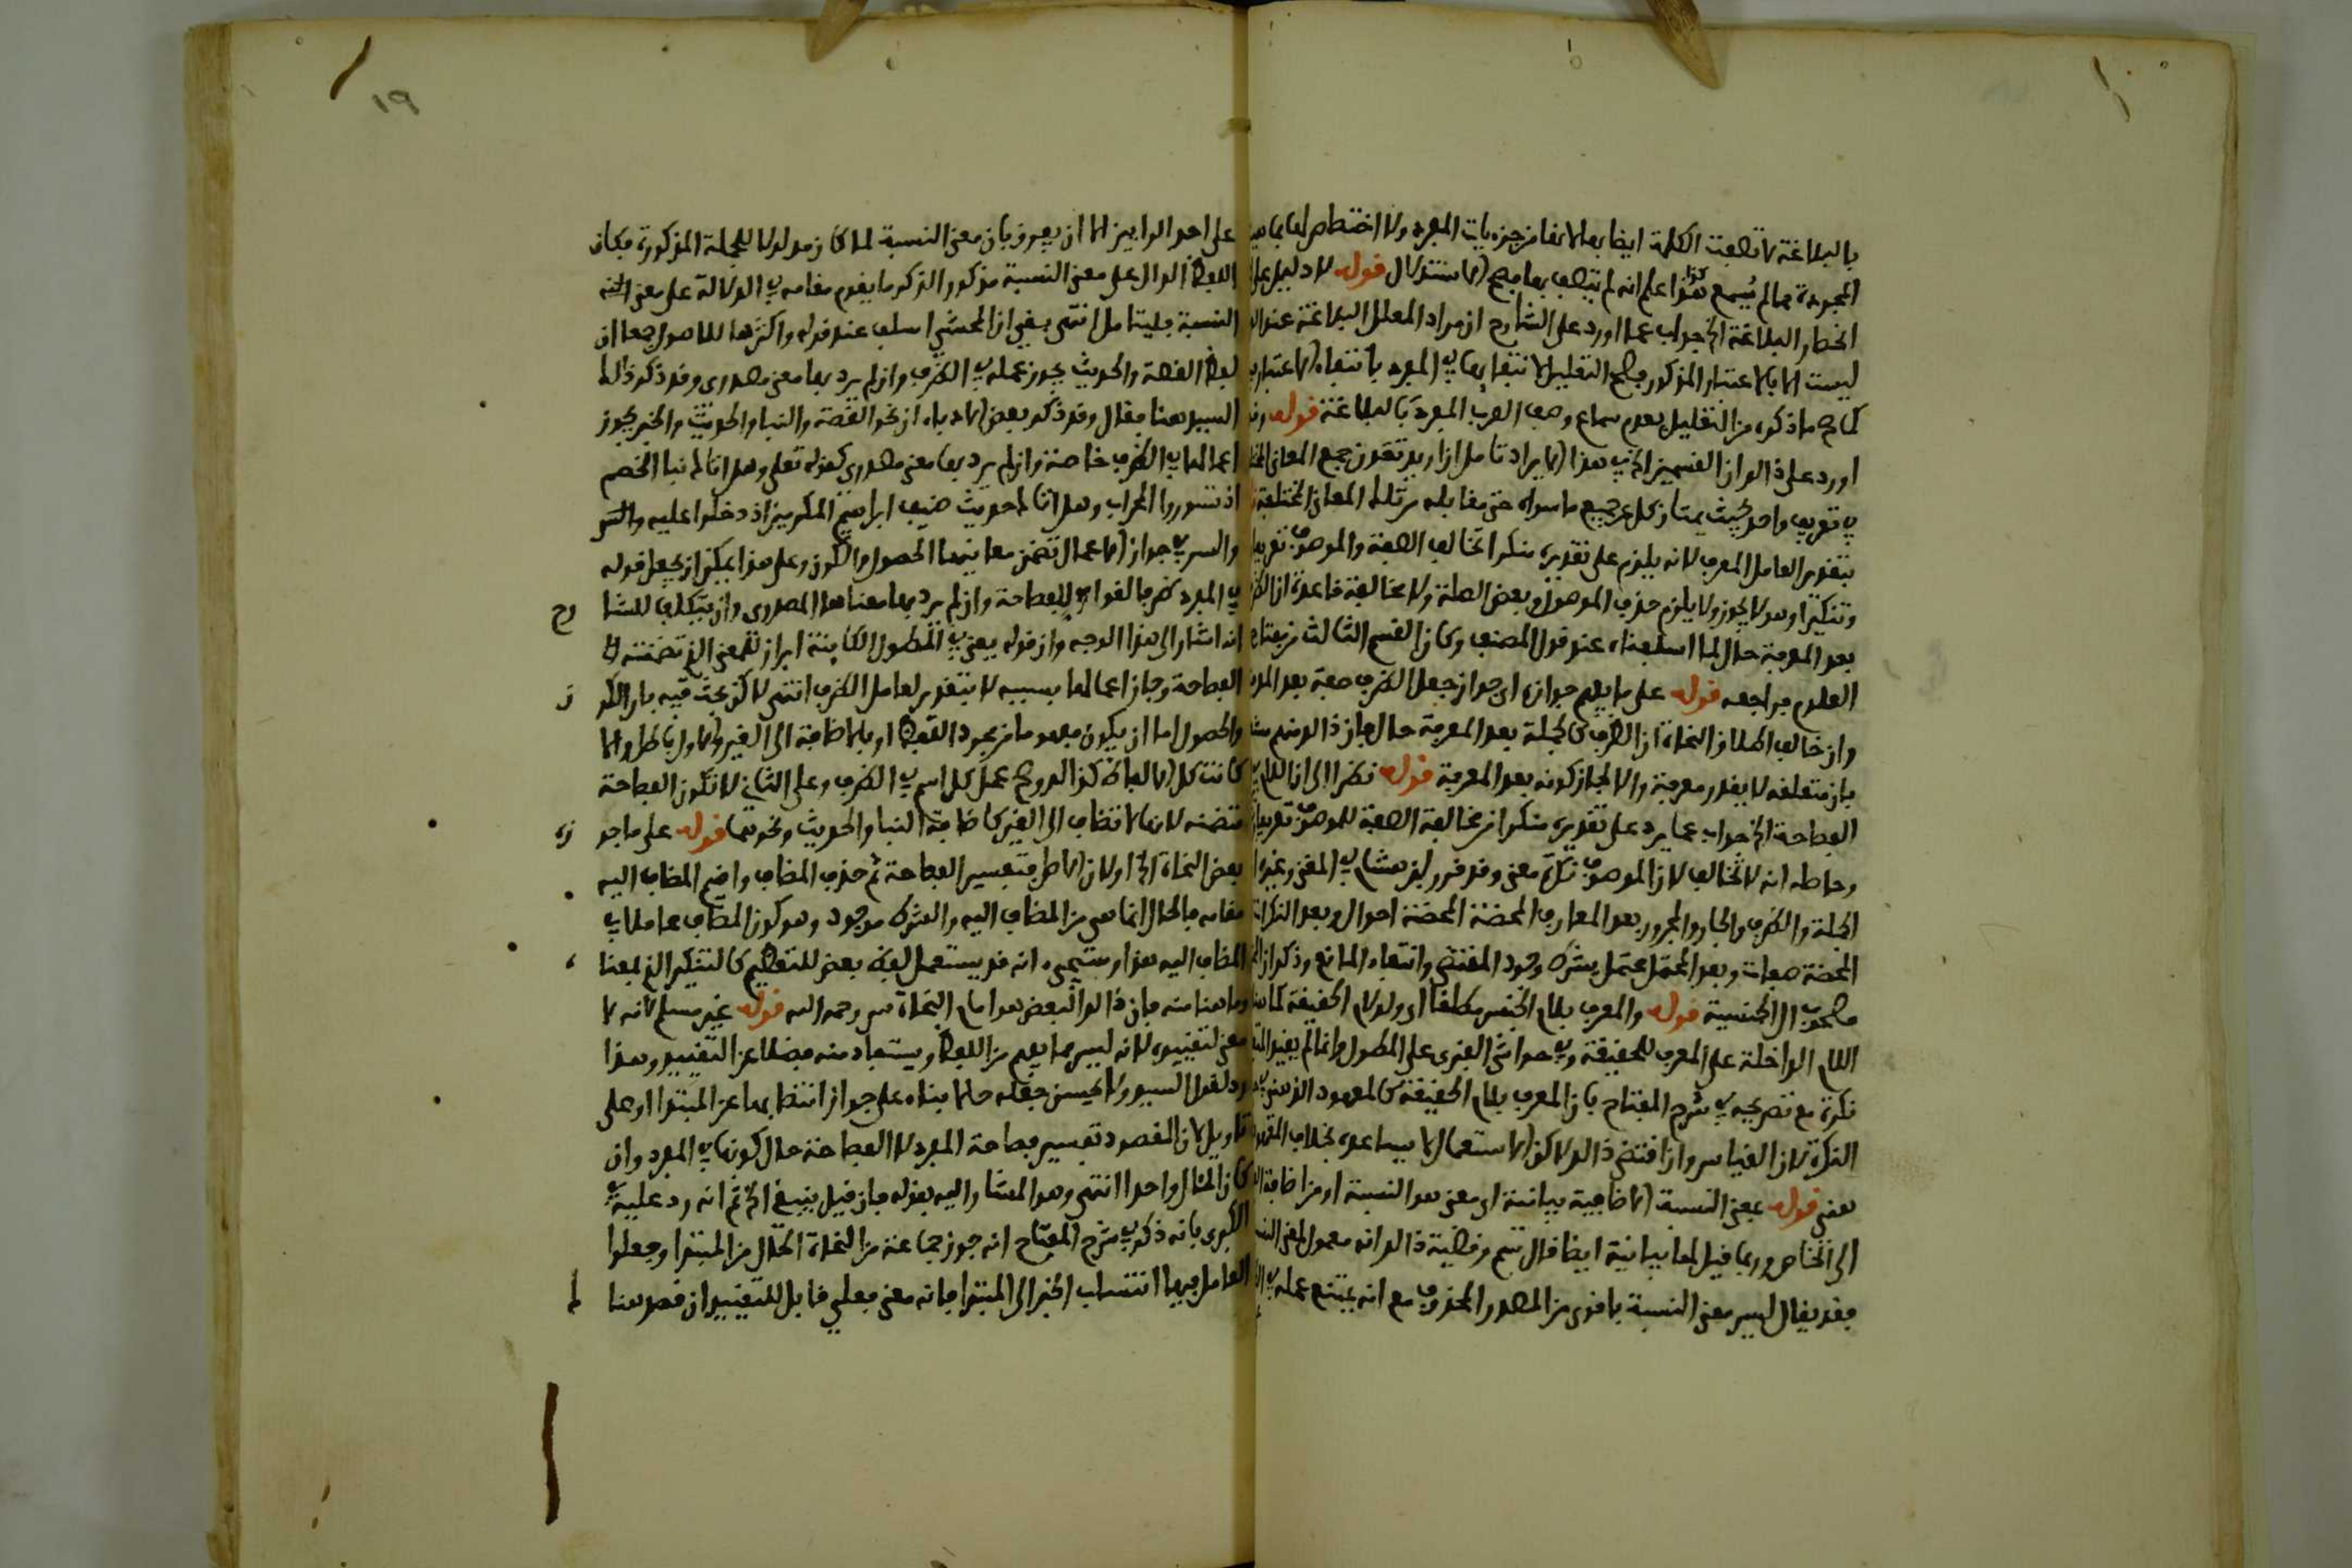 بالبلاغة لا تصفت الكلمة ايضا بها لانها من جزءيات المفرد ولا اختصاص لها بما هي
المجردة مما لم يسمع هذا اعلم انه لم يتصف بها فصح الاستدلال قوله لا دليل على
البلاغة الخ جواب عما اورد على الشارح ان مراد المعلل البلاغة عند
ليست الا بالاعتبار المذكور فصح التعليل لانتفائها في المفرد بانتفاء الاعتبار
كما صح ما ذكره من التعليل بعدم سماع وصف العرب المفرد بالبلاغة قوله
اورد على ذلك ان القسمين الخ في هذا الايراد تامل ان اريد تعذر جمع المعاني
في تعريف واحد بحيث يمتاز كل عن جميع ما سواه حتى مقابله من تلك المعاني المختلفة
بتقدير العامل المعرف لانه يلزم على تقديره منكرا تخالف الصفة والموصوف تعريفا
وتنكيرا وهو لا يجوز ولا يلزم حذف الموصول وبعض الصلة ولا مخالفة قاعدة ان
بعد المعرفة حال لما اسلفناه عند قول المصنف وكان القسم الثالث من مفتاح
العلوم فراجعه قوله على ما يفهم جوازه اي جواز جعل الظرف صفة بعد
وان خالف اطلاق النحاة ان الظرف كالجملة بعد المعرفة حال فان ذلك
بان متعلقه لا يقدر معرفة والا لجاز كونه بعد المعرفة قوله نظرا الى ان اللام في
الفصاحة الخ جواب عما يرد على تقديره منكرا من مخالفة الصفة للموصوف تعريفا
وحاصله انه لا تخالف لان الموصوف نكرة معنى وقد قرر ابن هشام في المغني وغيره
الجملة والظرف والجار والمجرور بعد المعارف المحضة احوال وبعد النكرات
المحضة صفات وبعد المحتمل محتمل بشرط وجود المقتضي وانتفاء المانع وذكر ان
مصحوب ال الجنسية قوله والمعرف بلام الجنس مطلقا اي ولو لام الحقيقة كما
اللام الداخلة على المعرف للحقيقة وفي حواشي الفنري على المطول وانما لم يقيد
نكرة مع تصريحه في شرح المفتاح بان المعرف بلام الحقيقة كالمعهود الذهني في
النكرة لان القياس وان اقتضى ذلك لكن الاستعمال لا يساعده بخلاف
معنى قوله بمعنى النسبة الاضافية بيانية اي معنى هو النسبة او من اضافة
الى الخاص وربما قيل لها بيانية ايضا قال سم وقضية ذلك انه معمول لمعنى
فقد يقال ليس معنى النسبة باقوى من المصدر المحذوف مع انه يمتنع عمله في
١٩
على احد الرايين الا ان يعرف بان معنى النسبة لما كان مدلولا للجملة المذكورة فكان
اللفظ الدال على معنى النسبة مذكور الذكر ما يقوم مقامه في الدلالة على معنى
النسبة فليتامل انتهى بقي ان المحشي اسلف عند قوله واكثرها للاصول جمعا ان
لفظ القصة والحديث يجوز عمله في الظرف وان لم يرد بها معنى مصدري وقد ذكر ذلك
السيد هنا فقال وقد ذكر بعض الادباء ان نحو القصة والنبا والحديث والخبر يجوز
اعمالها في الظرف خاصة وان لم يرد بها معنى مصدري كقوله تعالى وهل اتاك نبا الخصم
اذ تسوروا المحراب وهل اتاك حديث ضيف ابراهيم المكرمين اذ دخلوا عليه والسر
والسر في جواز الاعمال تضمن معانيها الحصول والكون وعلى هذا يمكن ان يجعل قوله
في المفرد ظرفا لقوله للفصاحة وان لم يرد بها معناها المصدري وان يتكلف للشا رح
انه اشار الى هذا الوجه وان قوله يعني في المطول الكائنة ابراز للمعنى الذي تضمنته
الفصاحة وجاز اعمالها بسببه لا بتقدير لعامل الظرف انتهى لا كن بحث فيه بان الكو ن
والحصول اما ان يكون مفهوما من مجرد اللفظ او بالاضافة الى الغير والاول باطل والا
كانت كل الالفاظ كذلك وصح عمل كل اسم في الظرف وعلى الثاني لا تكون الفصاحة
متضمنه لانها لا تضاف الى الغير كاضافة النبا والحديث ونحوهما قوله على ما جو زه
بعض النحاة الخ اولان الاصل فتفسير الفصاحة ثم حذف المضاف واقيم المضاف اليه
مقامه فالحال انما هي من المضاف اليه والشرط موجود وهو كون المضاف عاملا في
المضاف اليه هذا وسيجيء انه قد يستعمل لفظ بعض للتعظيم كالتنكير الذي لمعنا ه
وما هنا منه فان ذلك البعض هو امام النحاة س رحمه الله قوله غير مسلم لانه لا
معنى لتقييده لانه ليس مما يفهم من اللفظ ويستفاد منه فضلا عن التقييد وهذا
رد لقول السيد ولا يحسن جعله حالا بناء على جواز انتصابها عن المبتدا او على
تاويل لان المقصود تفسير فصاحة المفرد لا الفصاحة حال كونها في المفرد وان
كان المثال واحدا انتهى وهو المشار اليه بقوله فان قيل ينبغي الخ ثم انه رد عليه
الكبرى بانه ذكر في شرح المفتاح انه جوز جماعة من النحاة الحال من المبتدا وجعلوا
العامل فيها انتساب الخبر الى المبتدا فانه معنى فعلي قابل للتقييد ان قصد هنا